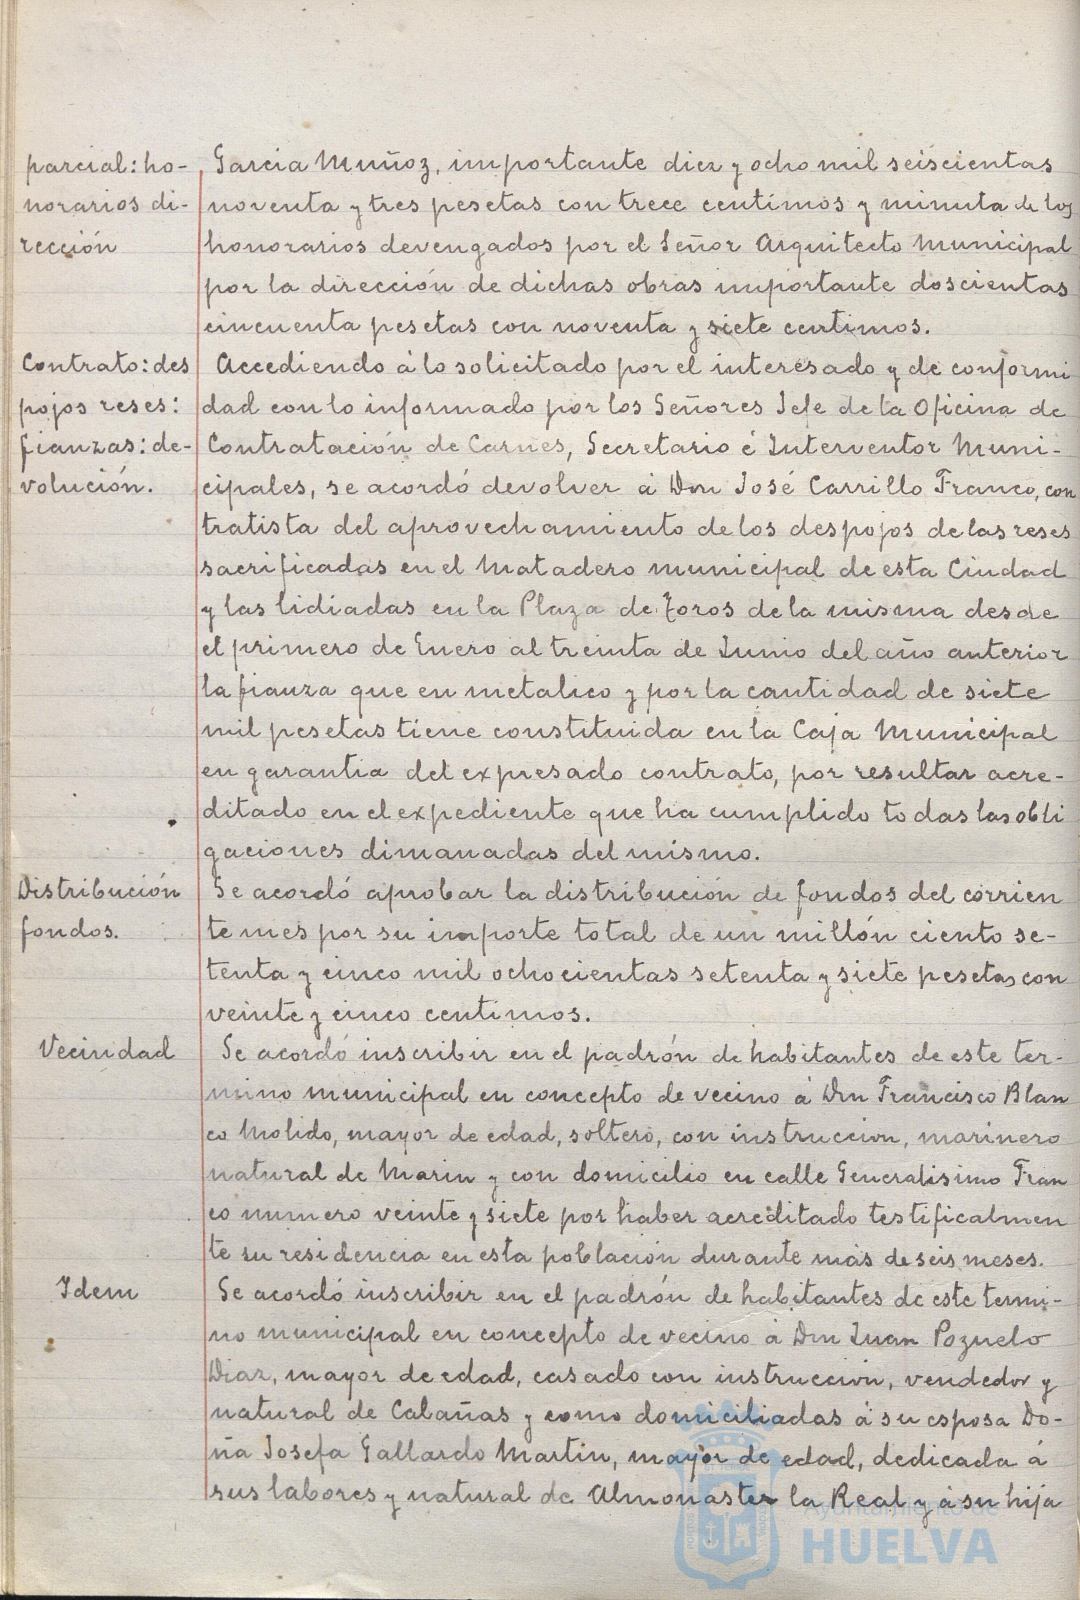 parcial: ho-
norarios di-
rección
Garcia Muñoz, importante diez y ocho mil seiscientas
noventa y tres pesetas con trece centimos y minuta de los
honorarios devengados por el Señor Arquitecto Municipal
por la dirección de dichas obras importante doscientas
cincuenta pesetas con noventa y siete centimos.
Contrato: des
pojos reses:
fianzas: de-
volución.
Accediendo á lo solicitado por el interesado y de conformi
dad con lo informado por los Señores Jefe de la Oficina de
Contratación de Carnes, Secretario é Interventor Muni-
cipales, se acordó devolver á Don José Carrillo Franco, con
tratista del aprovechamiento de los despojos de las reses
sacrificadas en el Matadero municipal de esta Ciudad
y las lidiadas en la Plaza de Toros de la misma desde
el primero de Enero al treinta de Junio del año anterior
la fianza que en metalico y por la cantidad de siete
mil pesetas tiene constituida en la Caja Municipal
en garantia del expresado contrato, por resultar acre-
ditado en el expediente que ha cumplido todas las obli
gaciones dimanadas del mismo.
Distribución
fondos.
Se acordó aprobar la distribución de fondos del corrien
te mes por su importe total de un millón ciento se-
tenta y cinco mil ochocientas setenta y siete pesetas con
veinte y cinco centimos.
Vecindad
Se acordó inscribir en el padrón de habitantes de este ter-
mino municipal en concepto de vecino á Don Francisco Blan
co Molido, mayor de edad, soltero, con instruccion, marinero
natural de Marin y con domicilio en calle Generalisimo Fran
co numero veinte y siete por haber acreditado testificalmen
te su residencia en esta población durante más de seis meses.
Idem
Se acordó inscribir en el padrón de habitantes de este termi-
no municipal en concepto de vecino á Don Juan Pozuelo
Diaz, mayor de edad, casado con instrucción, vendedor y
natural de Calañas y como domiciliadas á su esposa Do-
ña Josefa Gallardo Martin, mayor de edad, dedicada á
sus labores y natural de Almonaster la Real y á su hija
Ayuntamiento de
HUELVA